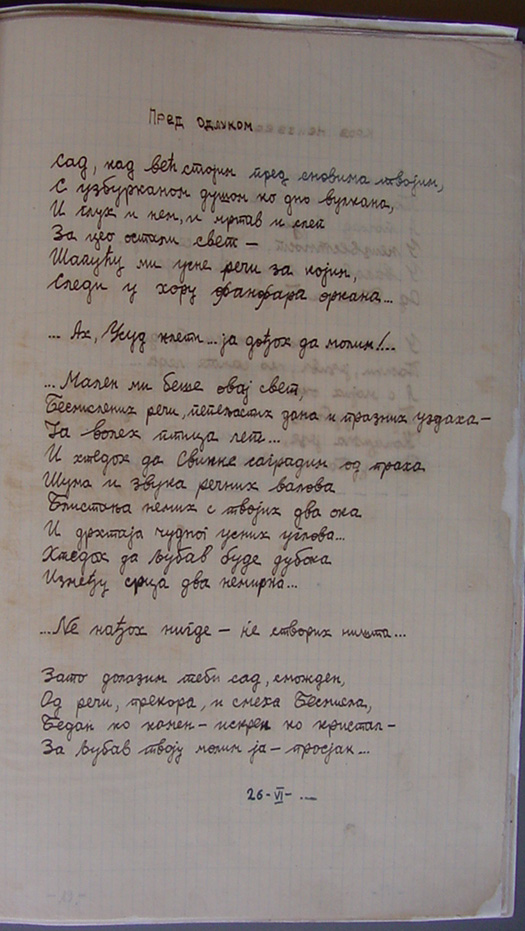 Пред одлуком
Сад, кад већ стојим пред сновима твојим,
С узбурканом душом ко дно вулкана,
И глух и нем, и мртав и слеп
За цео остали свет —
Шапућу ми усне речи за којим,
Следи у хору фанфара оркана...
... Ах, Усуд клети... ја дођох да молим!...
... Мален ми беше овај свет,
Бесмислених речи, пепељастих дана и празних уздаха —
Ја волех птица лет...
И хтедох да Свемир саградим од праха
Шума и звука речних валова
Блистања немих с твојих два ока
И дрхтаја чудног усних углова...
Хтедох да љубав буде дубока
Између срца два немирна...
... Не нађох нигде — не створих ништа...
Зато долазим теби сад, смождeн,
Од речи, прекора, и смеха Бесмисла,
Бедан ко камен — искрен ко кристал —
За љубав твоју молим ја — просјак...
26-VI- ....